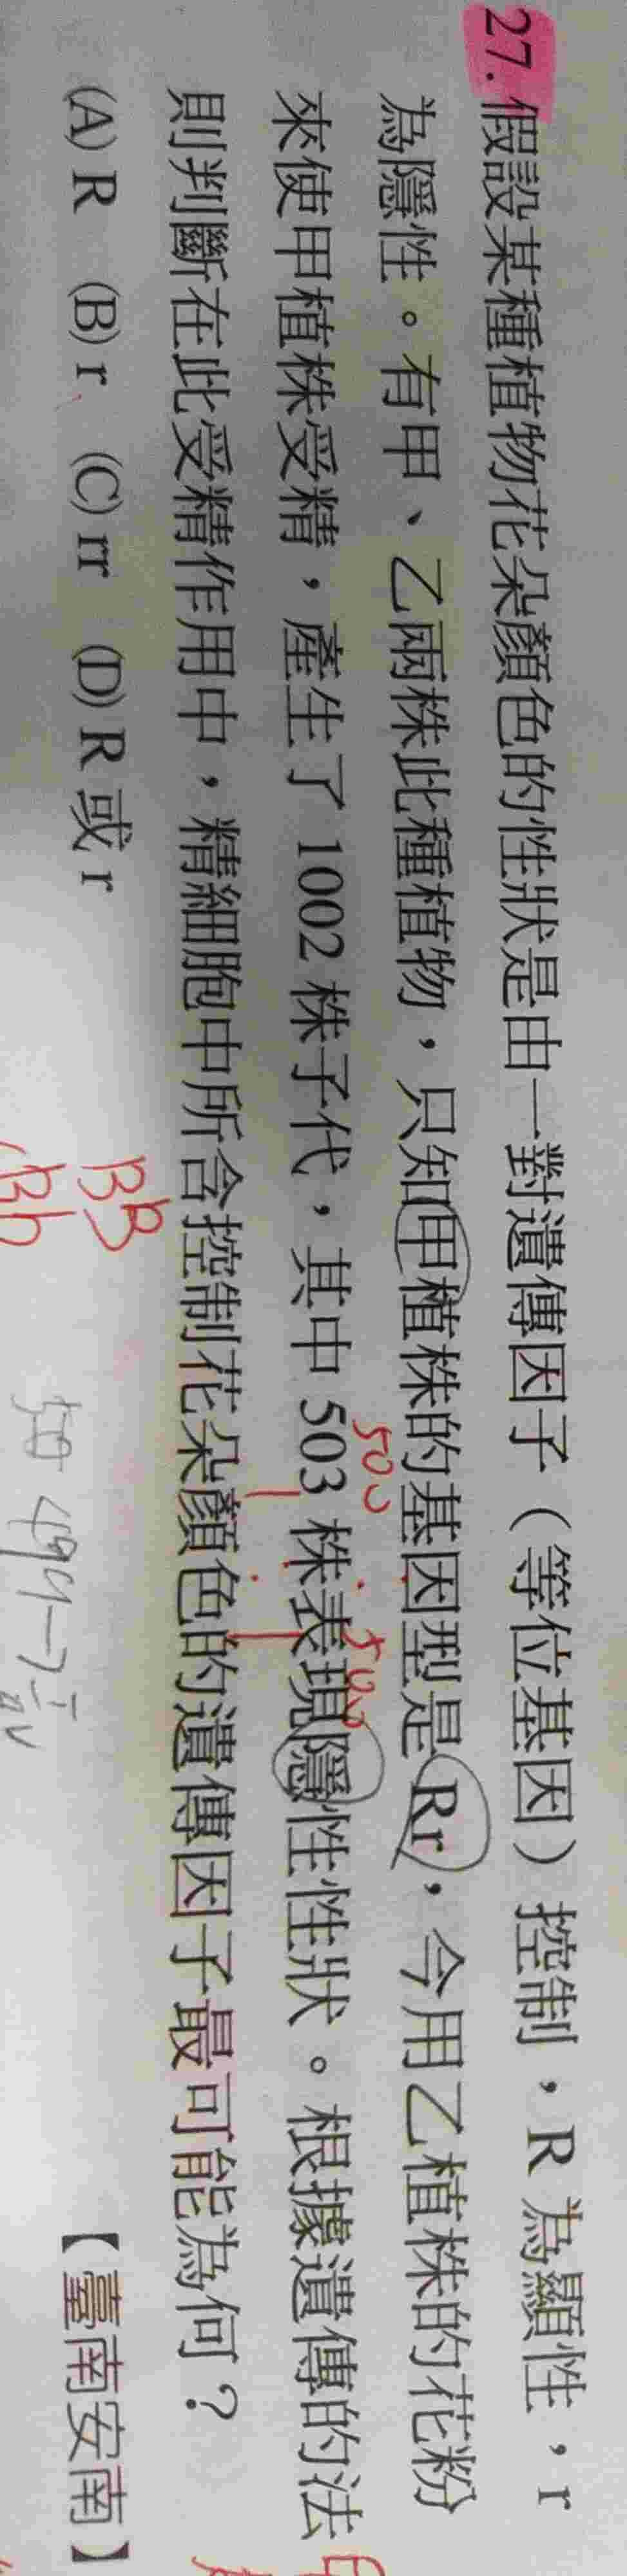 27.假設某種植物花朵顏色的性狀是由一對遺傳因子（等位基因）控制，R 為顯性，r
為隱性。有甲、乙兩株此種植物，只知甲植株的基因型是 Rr，今用乙植株的花粉
500 500
來使甲植株受精，產生了 1002 株子代，其中 503 株表現隱性性狀。根據遺傳的法
則判斷在此受精作用中，精細胞中所含控制花朵顏色的遺傳因子最可能為何？
(A) R (B) r (C) rr (D) R 或 r 【臺南安南】
BB
Bb
499